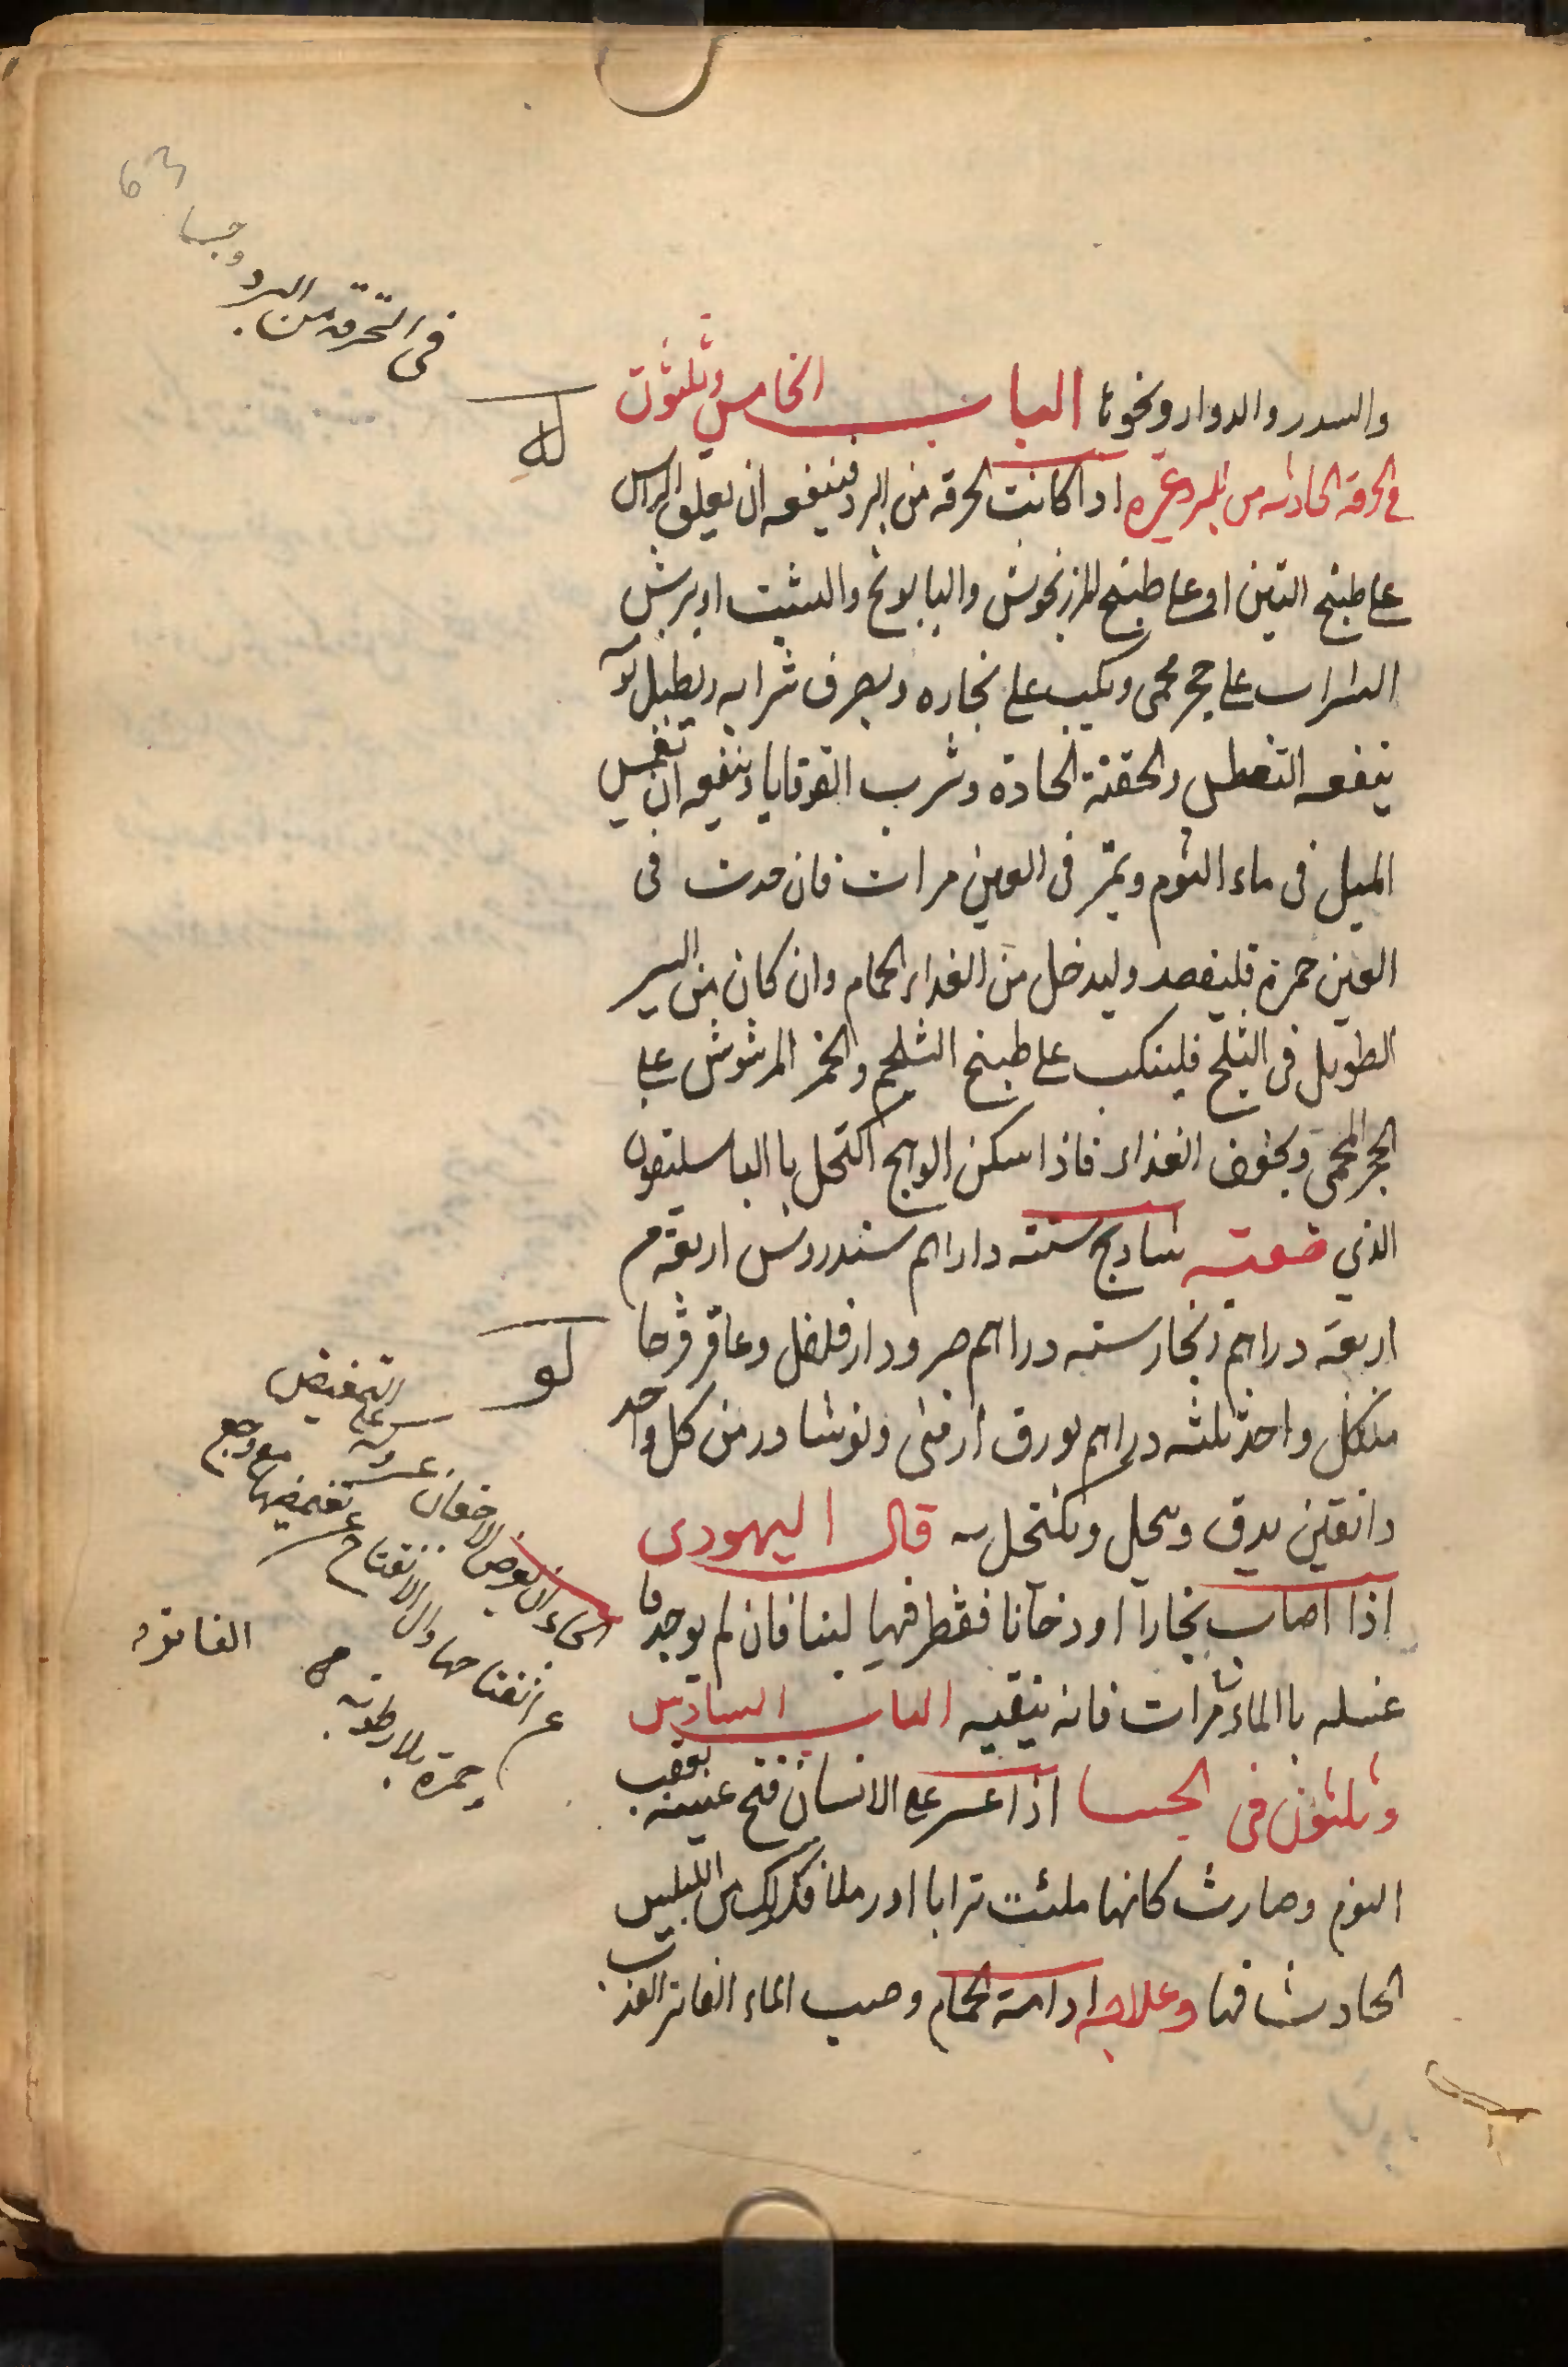 63
وجسا
في الحرقة من البرد
والسدر والدوار ونحوها الباب الخامس وثلثون
له
في الحرقة الحادثه من البرد وغيره اذا كانت الحرقة من البرد فينفعه ان يعلق الراس
على طبيخ التين او على طبيخ المرزنجوش والبابونج والشبت او يرش
الشراب على حجر محمى ويكب على بخاره وبصرف شرابه
ينفعه التعطل والحقنة الحادة وشرب القوقايا وينفعه ان تغمس
الميل في ماء الثوم ويمر في العين مرات فان حدث في
العين حمرة فليفصد وليدخل من الغداء الحمام وان كان من السير
الطويل في الثلج فلينكب على طبيخ الشلجم والخمر المرشوش على
الحجر المحمى ويخفف الغذاء فاذا سكن الوجع اكتحل باالباسليقون
الذي صفته شادنج سته داراهم سندروس اربعة م
اربعة دراهم زنجار سته دراهم صبر ودارفلفل وعاقرقرحا
لو
منكل واحد ثلثه دراهم بورق ارمنى ونوشادر من كل واحد
دانقين يدق وينحل ويكتحل به قال اليهودى
اذا اصاب بخارا او دخانا فقطر فيها لبنا فان لم يوجد فا
غسله باالماء مرات فانه ينقيه الباب السادس
وثلثون في الجسا اذا عسر على الانسان فتح عينيه بعقب
النوم وصارت كانها ملئت ترابا او رملا فذلك من اليبس
الحادث فيها وعلاجه ادامة الحمام وصب الماء الفاتر العذب
التغميض
الجساء ان يعرض للاجفان عسر
تغميضها مع وجع
عن انفتاحها والى الانفتاح
وحمرة بلا رطوبة
الفانوه